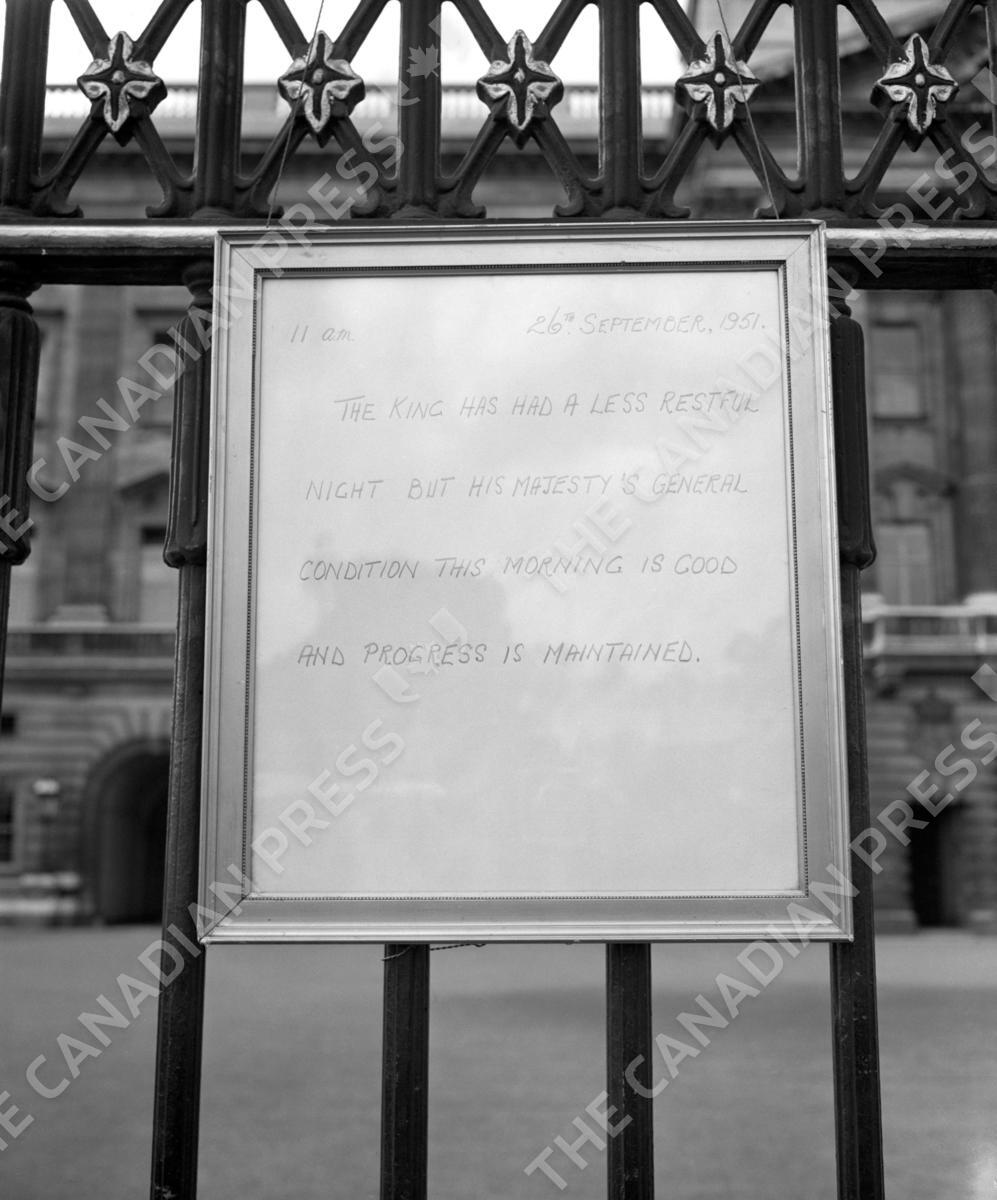 11 a.m. 26TH SEPTEMBER, 1951.
THE KING HAS HAD A LESS RESTFUL
NIGHT BUT HIS MAJESTY'S GENERAL
CONDITION THIS MORNING IS GOOD
AND PROGRESS IS MAINTAINED.
THE CANADIAN PRESS
THE CANADIAN PRESS
THE CANADIAN PRESS
THE CANADIAN PRESS
THE CANADIAN PRESS